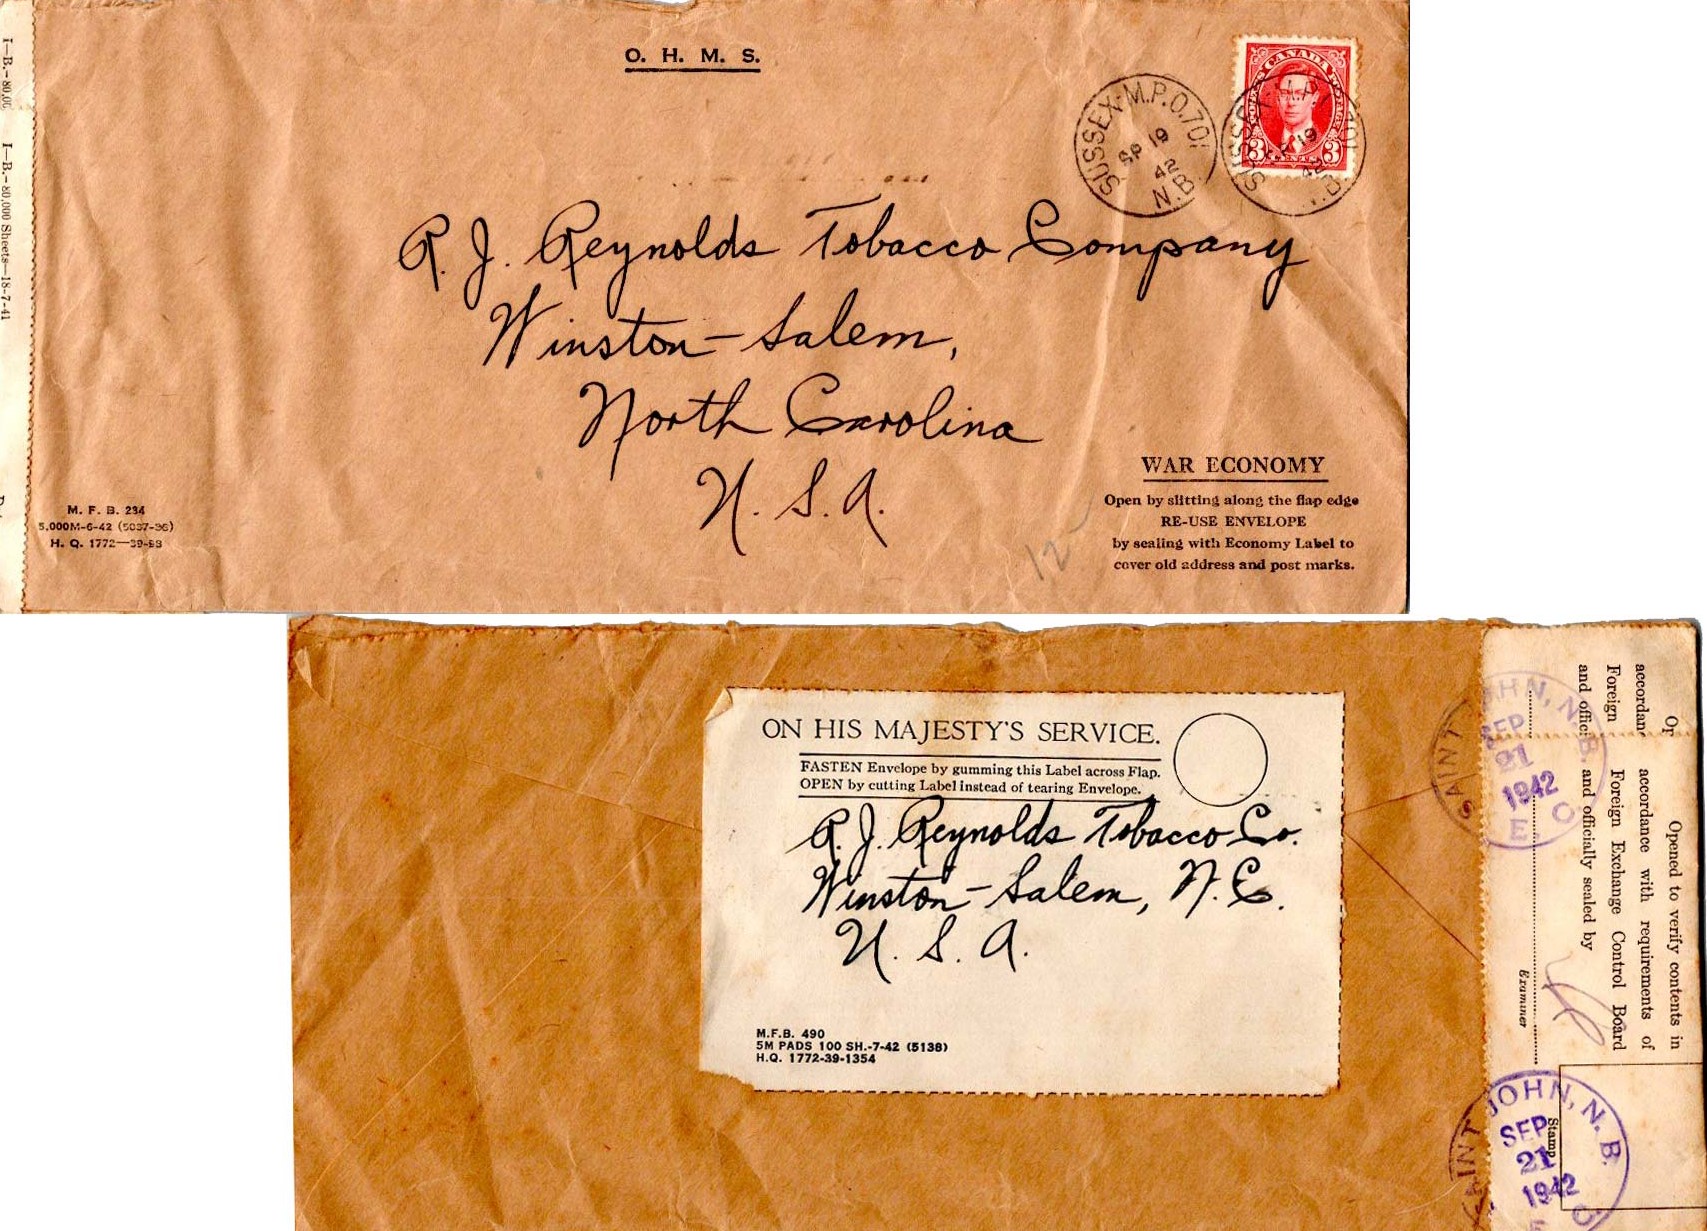 O. H. M. S.
CANADA
3 CENTS 3
SUSSEX-M.P.O.701
SP 19
42
N.B.
SUSSEX-M.P.O.701
19
42
R. J. Reynolds Tobacco Company
Winston-Salem,
North Carolina
U. S. A.
12
WAR ECONOMY
Open by slitting along the flap edge
RE-USE ENVELOPE
by sealing with Economy Label to
cover old address and post marks.
M. F. B. 234
5,000M-6-42 (5037-36)
H. Q. 1772—39-93
I—B.—80,00
I—B.—80,000 Sheets—18-7-41
ON HIS MAJESTY'S SERVICE.
FASTEN Envelope by gumming this Label across Flap.
OPEN by cutting Label instead of tearing Envelope.
R. J. Reynolds Tobacco Co.
Winston-Salem, N. C.
U. S. A.
M.F.B. 490
5M PADS 100 SH.-7-42 (5138)
H.Q. 1772-39-1354
Op
accordan
Foreign
and offic
Opened to verify contents in
accordance with requirements of
Foreign Exchange Control Board
and officially sealed by
Examiner
Stamp
SAINT JOHN, N. B.
SEP
21
1942
E. O.
SAINT JOHN, N. B.
SEP
21
1942